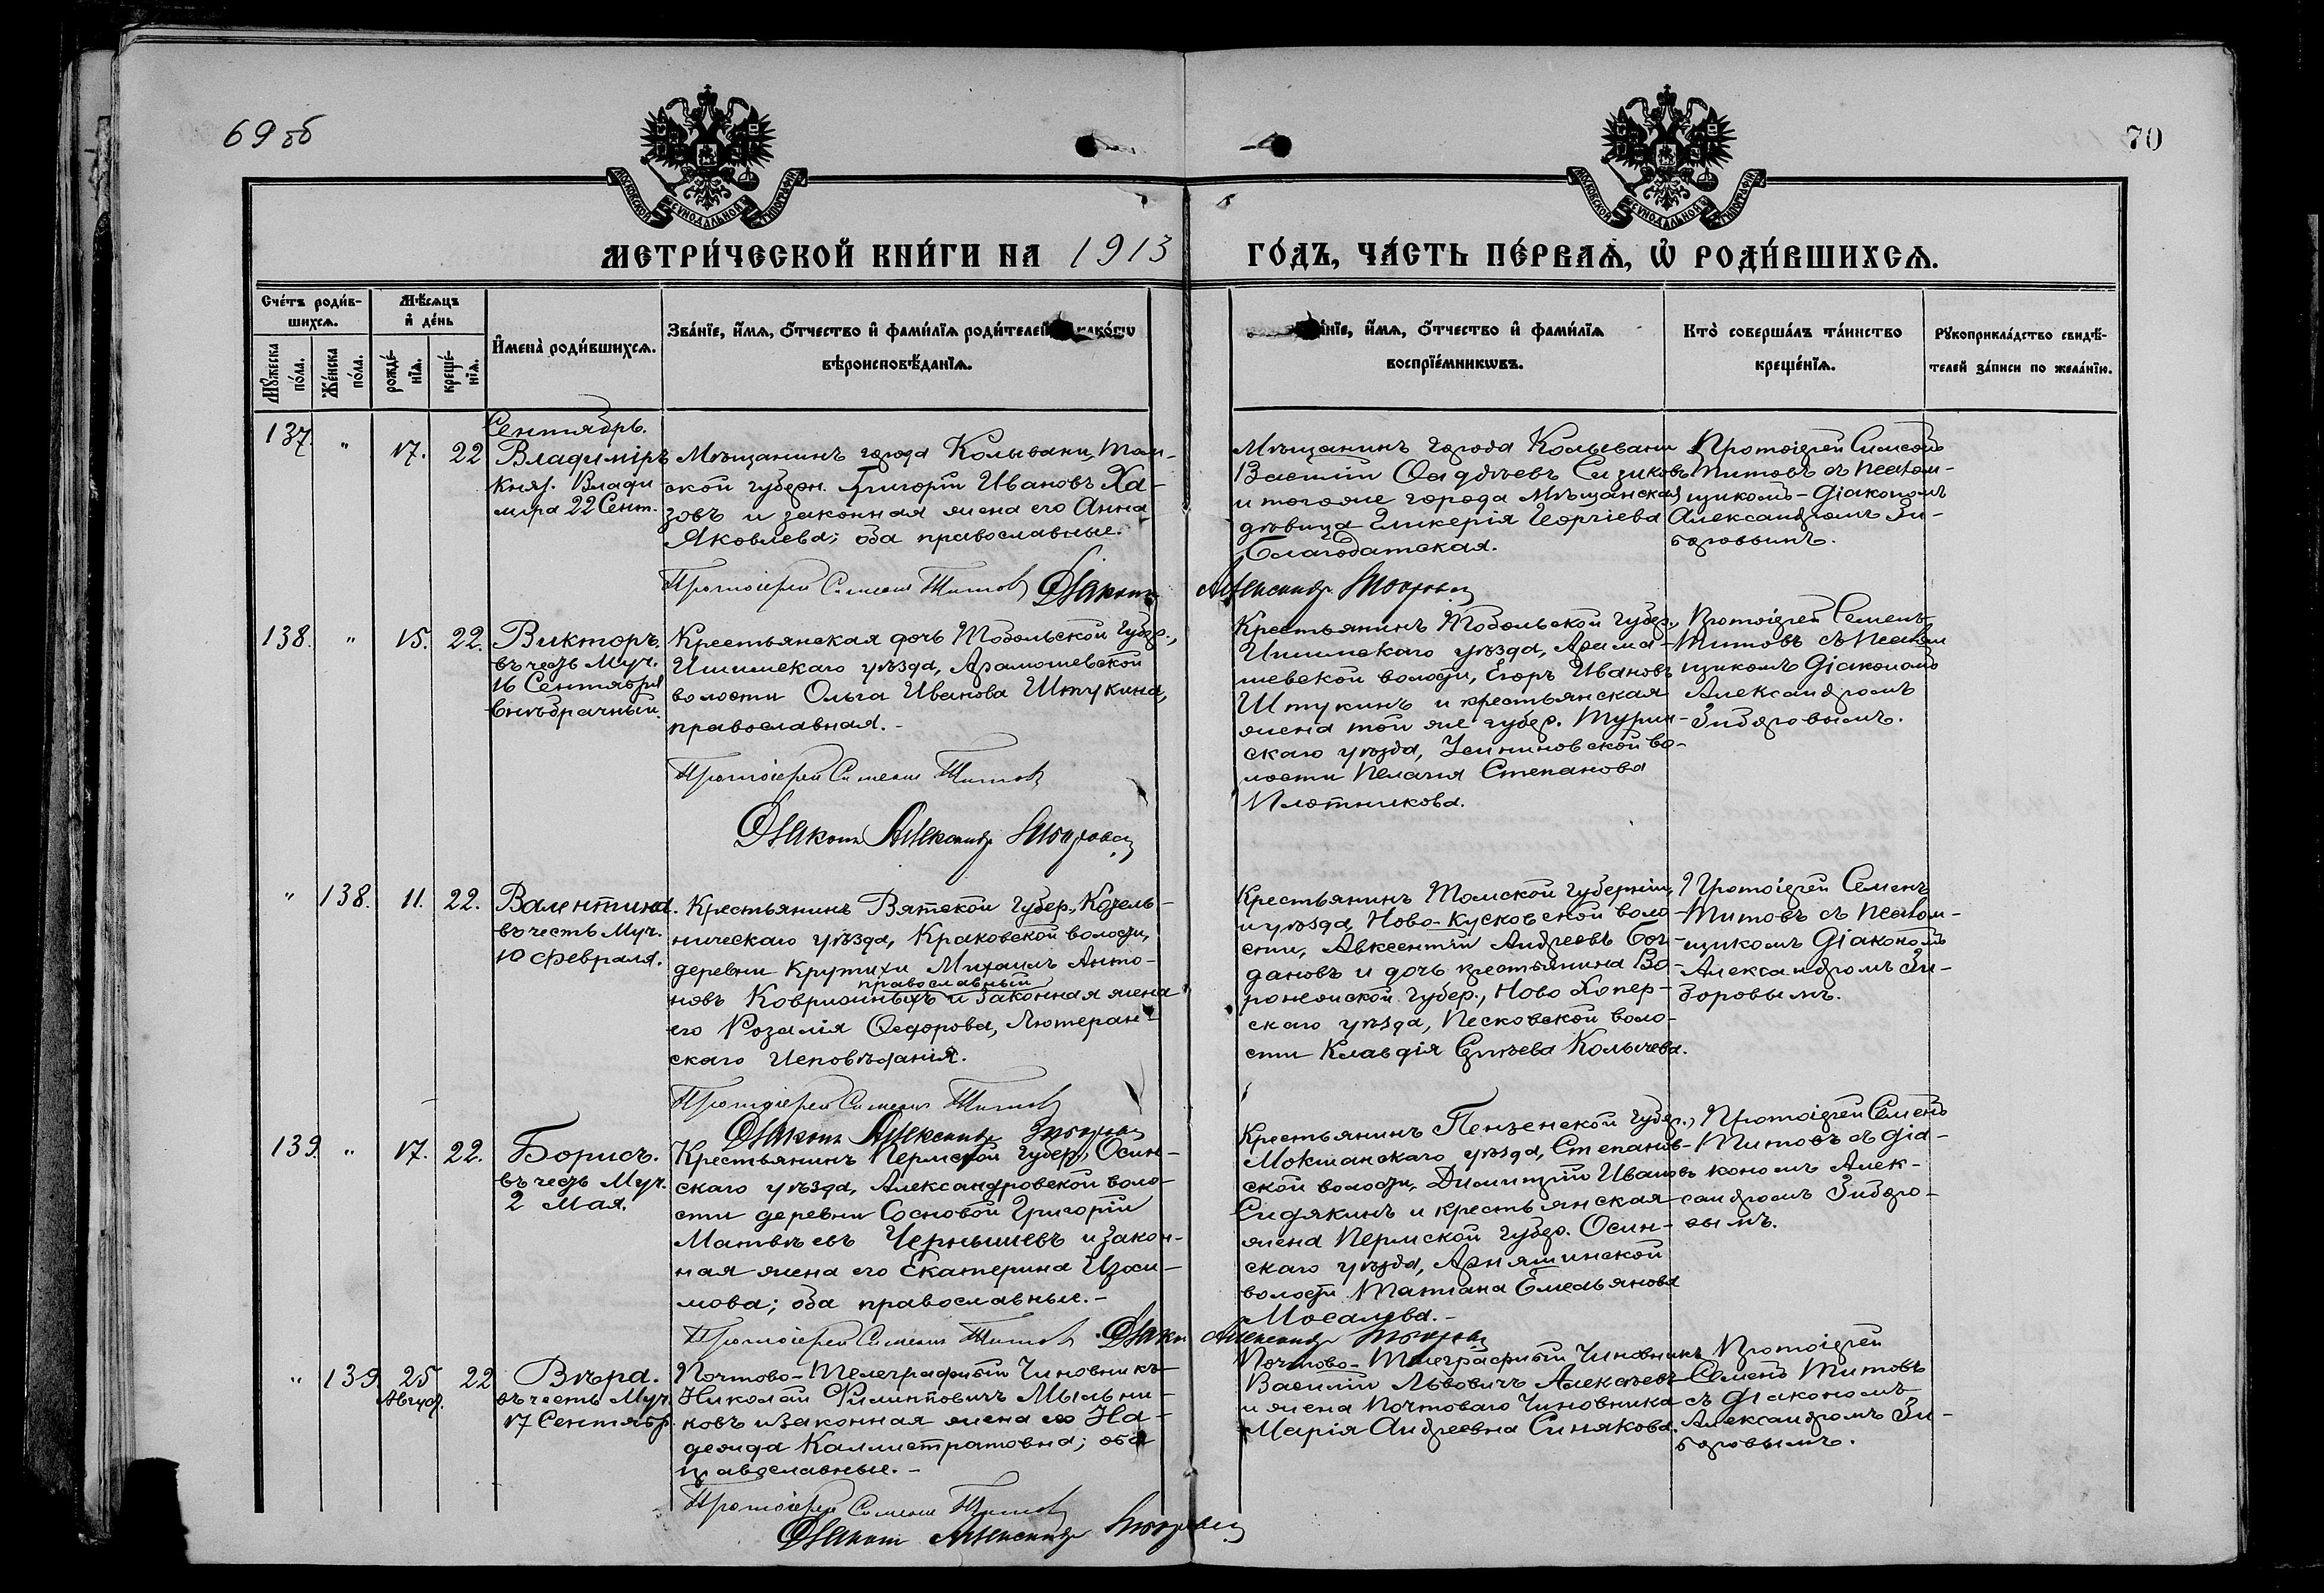 69 об
70
МОСКОВСКОЙ СУНОДАЛЬНОЙ ТИПОГРАФІИ
МОСКОВСКОЙ СУНОДАЛЬНОЙ ТИПОГРАФІИ
МЕТРИ́ЧЕСКОЙ КНИ́ГИ НА 1913 ГО́ДЪ, ЧА́СТЬ ПЕ́РВАѦ, Ѡ҆ РОДИ́ВШИХСѦ.
Сче́тъ роди́в-
шихсѧ.
Мꙋ́жеска по́ла.
Же́нска по́ла.
Мѣ́сѧцъ
и҆ де́нь
рожде́-
нїѧ.
креще́-
нїѧ.
И҆мена̀ роди́вшихсѧ.
Зва́нїе, и҆́мѧ, ѻ҆́тчество и҆ фами́лїѧ роди́телей
вѣроисповѣ́данїѧ.
и҆́мѧ, ѻ҆́тчество и҆ фами́лїѧ
воспрїе́мникѡвъ.
Кто̀ соверша́лъ та́инство
креще́нїѧ.
Рꙋкоприкла́дство свидѣ́-
телей за́писи по жела́нїю.
Сентябрь.
137. " 17. 22
Владиміръ
Княз. Влади
міра 22 Сент.
Мѣщанинъ города Колывани, Том-
ской губерн. Григорій Ивановъ Ха-
зовъ и законная жена его Анна
Яковлева; оба православные.
Протоіерей Симеонъ Титовъ Діаконъ Александръ Зиборовъ
Мѣщанинъ города Колывани
Василій Фадѣевъ Сизиковъ
и тогоже города мѣщанская
дѣвица Гликерія Георгіева
Благодатская.
Протоіерей Симеонъ
Титовъ съ псалом-
щикомъ-діакономъ
Александромъ Зи-
боровымъ.
138. " 15. 22.
Викторъ.
въ честь Муч.
16 Сентября
Внѣбрачный.
Крестьянская дочь Тобольской губер.,
Ишимскаго уѣзда, Арамашевской
волости Ольга Иванова Штукина,
православная.-
Протоіерей Симеонъ Титовъ
Діаконъ Александръ Зиборовъ
Крестьянинъ Тобольской губер.,
Ишимскаго уѣзда, Арама-
шевской волости, Егоръ Ивановъ
Штукинъ и крестьянская
жена той же губер. Турин-
скаго уѣзда, Усениновской во-
лости Пелагія Степанова
Плотникова.
Протоіерей Семенъ
Титовъ съ псалом
щикомъ діакономъ
Александромъ
Зиборовымъ.
" 138. 11. 22.
Валентина.
въ честь Муч.
10 февраля.
Крестьянинъ Вятской губер., Котель-
ническаго уѣзда, Краковской волости,
деревни Крутихи Михаилъ Анто-
православный
новъ Коврижныхъ и законная жена
его Розалія Федорова, Лютеран-
скаго исповѣданія.
Протоіерей Симеонъ Титовъ
Діаконъ Александръ Зиборовъ
Крестьянинъ Томской губерніи,
и уѣзда, Ново-Кусковской воло-
сти, Авксентій Андреевъ Бог-
дановъ и дочь крестьянина Во-
ронежской губер., Ново Хопер-
скаго уѣзда, Песковской воло-
сти Клавдія Сергѣева Колычева.
Протоіерей Семенъ
Титовъ съ псалом-
щикомъ діакономъ
Александромъ Зи-
боровымъ.
139. " 17. 22.
Борисъ.
въ честь Муч.
2 Мая.
Крестьянинъ Пермской губер., Осин-
скаго уѣзда, Александровской воло-
сти деревни Сосновой Григорій
Матвѣевъ Чернышевъ и закон-
ная жена его Екатерина Изоси-
мова; оба православные.-
Протоіерей Симеонъ Титовъ Діаконъ Александръ Зиборовъ
Крестьянинъ Пензенской губер.,
Мокшанскаго уѣзда, Степанов-
ской волости, Димитрій Ивановъ
Сидякинъ и крестьянская
жена Пермской губер. Осин-
скаго уѣзда, Аряжинской
волости Татіана Емельянова
Мосалева.-
Протоіерей Семенъ
Титовъ съ діа-
кономъ Алек-
сандромъ Зиборо-
вымъ.
" 139 25 Август. 22
Вѣра.
въ честь Муч.
17 Сентябр.
Почтово-Телеграфный Чиновникъ
Николай Филипповичъ Мыльни-
ковъ и законная жена его На-
дежда Каллистратовна; оба
православные.-
Протоіерей Симеонъ Титовъ
Діаконъ Александръ Зиборовъ
Почтово-Телеграфный Чиновникъ
Василій Львовичъ Алексѣевъ
и жена Почтоваго Чиновника
Марія Андреевна Синякова.
Протоіерей
Семенъ Титовъ
съ діакономъ
Александромъ Зи-
боровымъ.